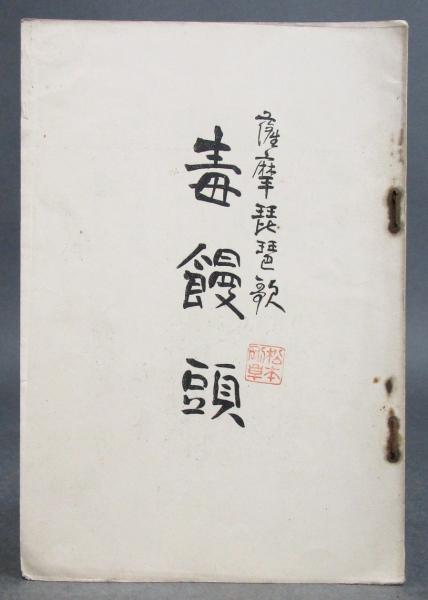 薩摩琵琶歌
毒饅頭
松本